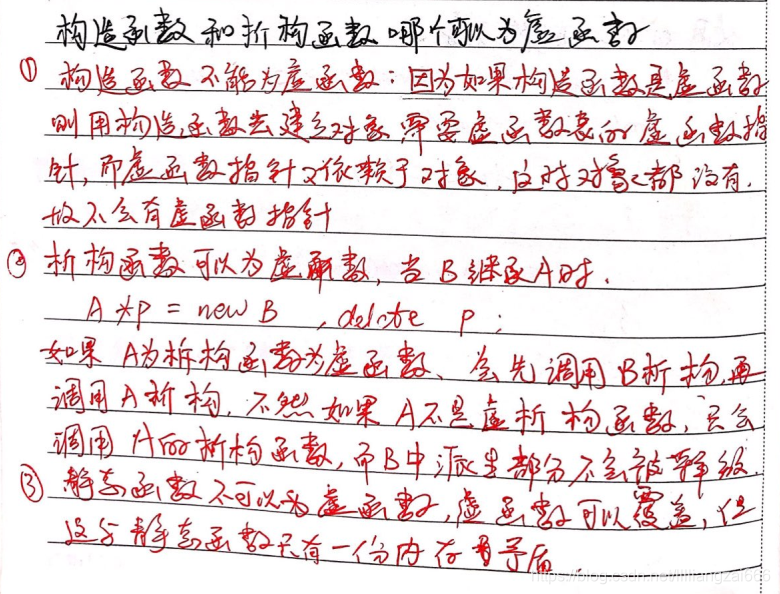 构造函数和折构函数哪个可以为虚函数
① 构造函数不能为虚函数：因为如果构造函数是虚函数
则用构造函数去建立对象需要虚函数表的虚函数指
针，而虚函数指针又依赖于对象，这时对象都没有，
故不会有虚函数指针
② 析构函数可以为虚函数，当B继承A时．
A *p = new B ，delete p ;
如果A为析构函数为虚函数、会先调用B析构，再
调用A析构，不然如果A不是虚析构函数，只会
调用A的析构函数，而B中派生部分不会被
③ 静态函数不可以为虚函数，虚函数可以覆盖，但
这与静态函数只有一份内存有矛盾．